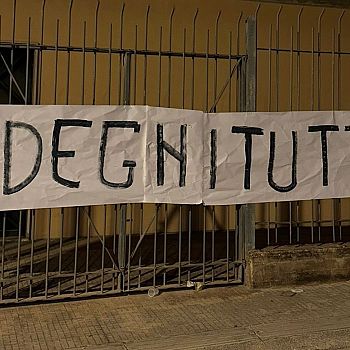 DEGNI TUT